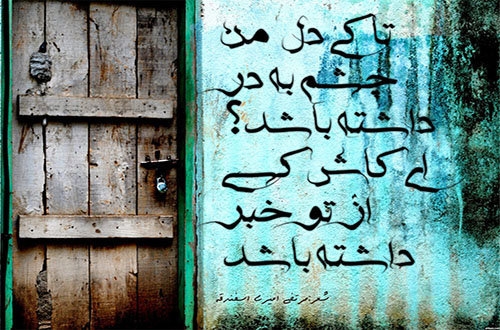 تا کی دل من
چشم به در
داشته باشد؟
ای کاش کسی
از تو خبر
داشته باشد
شعر: مرتضی امیری اسفندقه